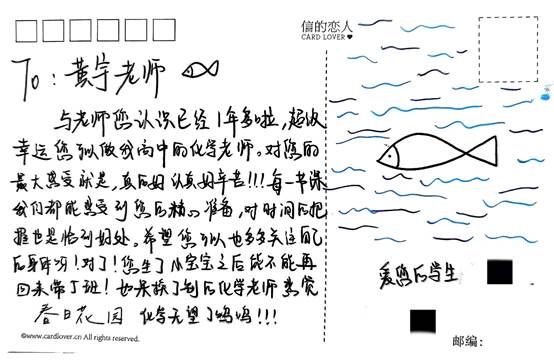 信的恋人
CARD LOVER
To: 黄宇老师
与老师您认识已经1年多啦,超级
幸运您可以做我高中的化学老师。对您的
最大感受就是,真的好认真好辛苦!!!每一节课
我们都能感受到您的精心准备,对时间的把
握也是恰到好处。希望您可以也多多关注自己
的身体呀!对了!您生了小宝宝之后能不能再
回来带J班!
化学无望了呜呜!!!
春日花园
爱您的学生
©www.cardlover.cn All rights reserved.
邮编: